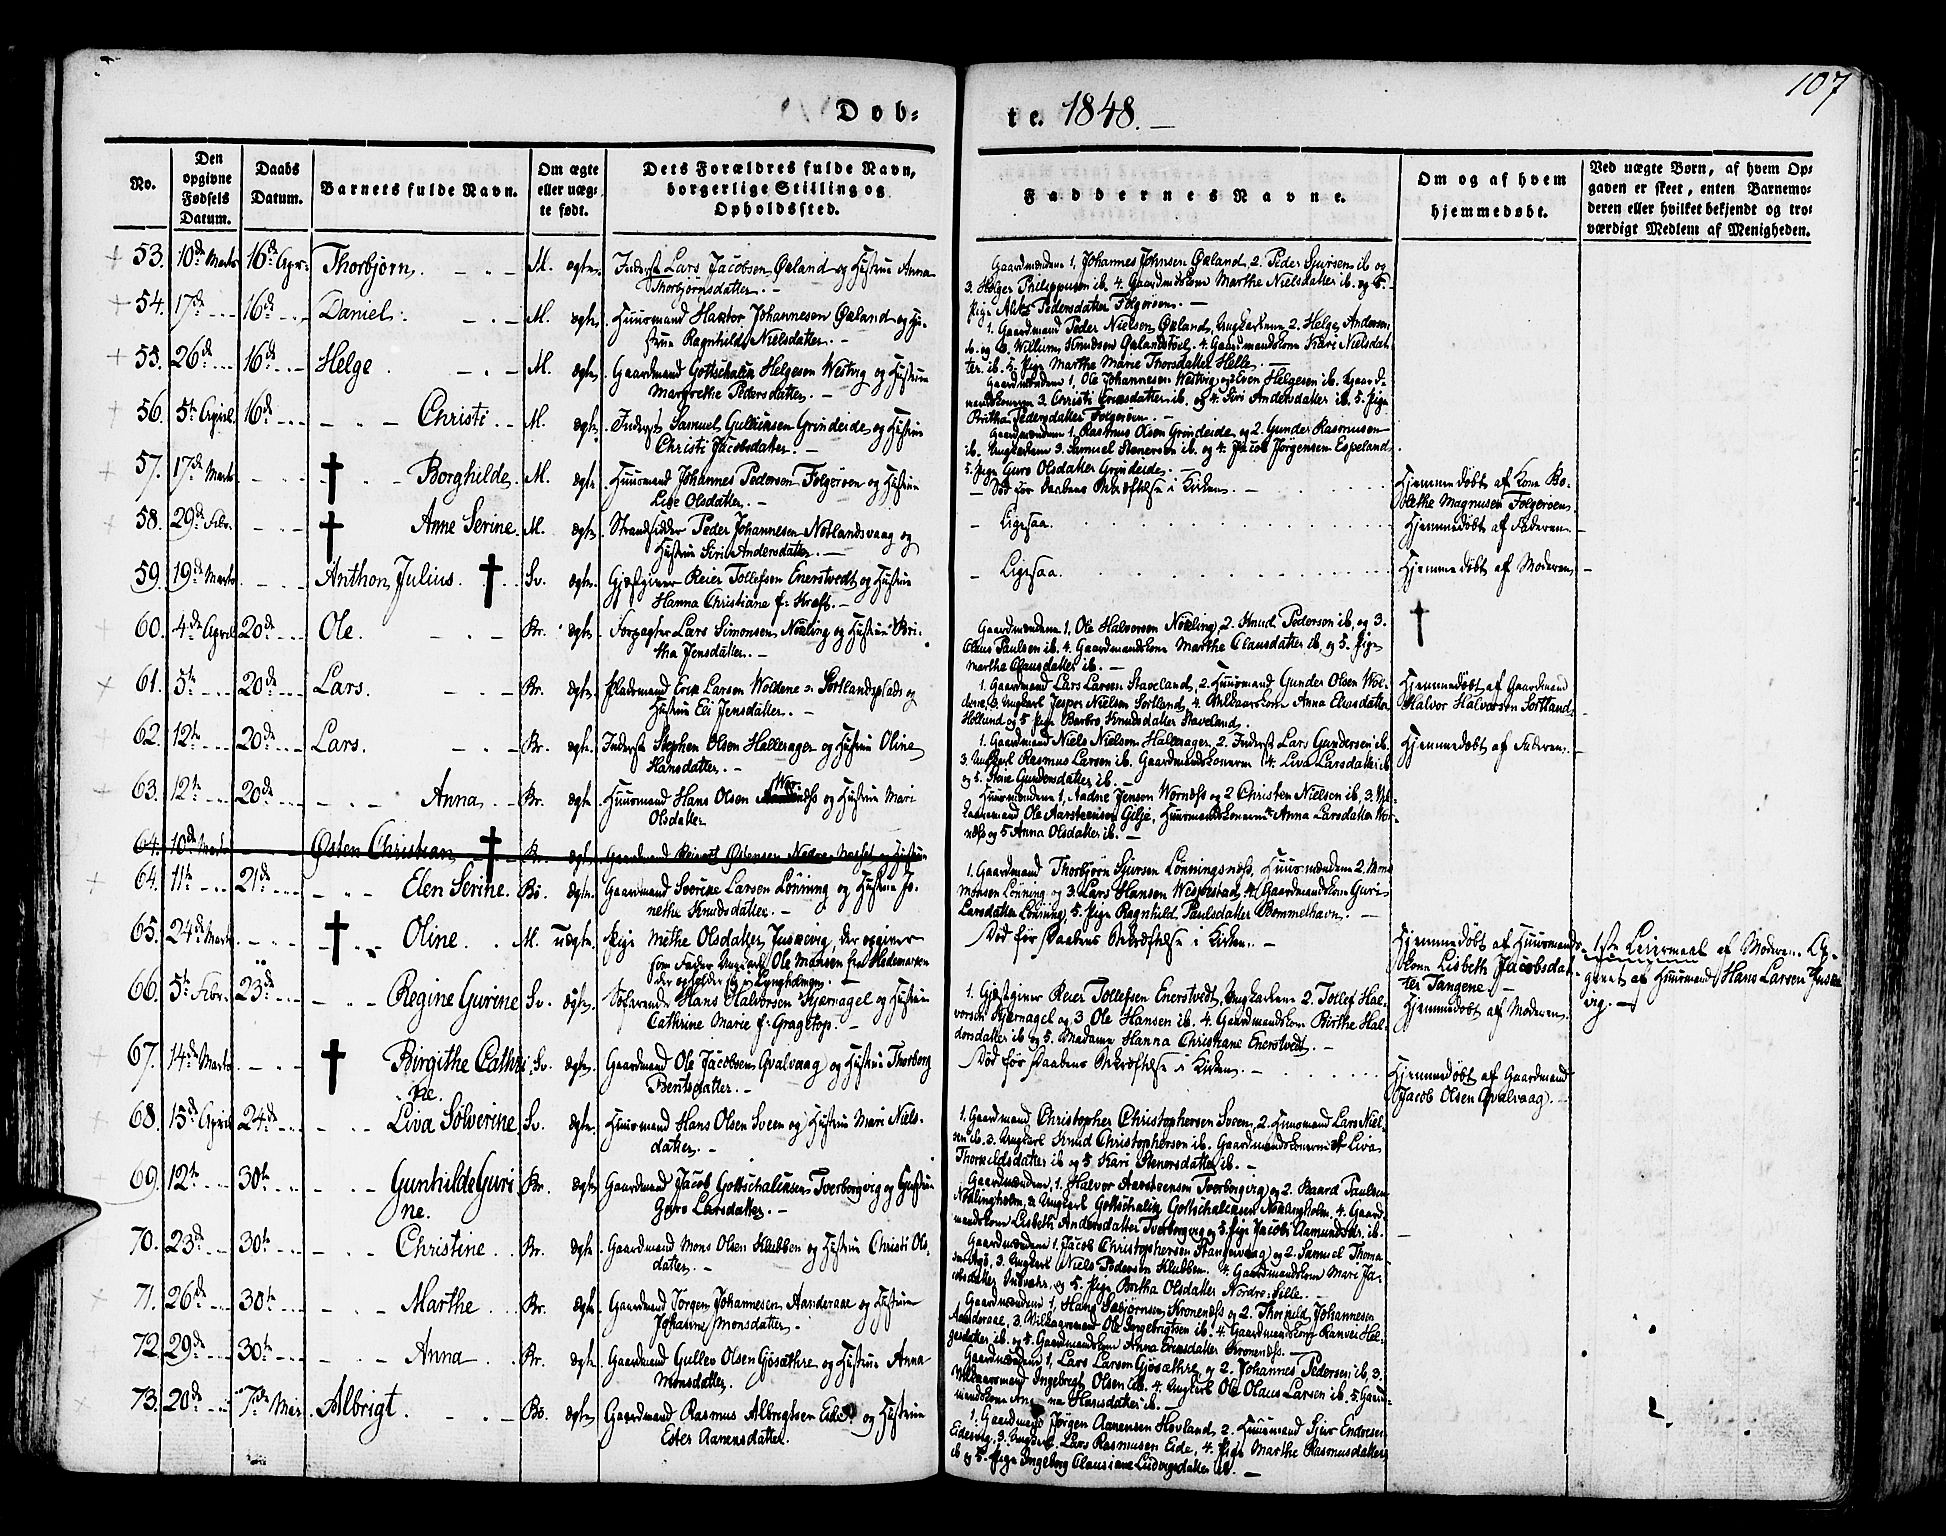 107
Døb-
te. 1848.
No.
Den opgivne Fødsels Datum.
Daabs Datum.
Barnets fulde Navn.
Om ægte eller uægte født.
Dets Forældres fulde Navn, borgerlige Stilling og Opholdssted.
Faddernes Navne.
Om og af hvem hjemmedøbt.
Ved uægte Børn, af hvem Op-
gaven er skeet, enten Barnemo-
deren eller hvilket bekjendt og tro-
værdigt Medlem af Menigheden.
53. 10de Marts 16de Apr. Thorbjørn. M. ægte. Inderst Lars Jacobsen Økland og Hustrue Anna
Thorbjørnsdatter.
Gaardmændene 1, Johannes Johnsen Økland, 2. Peder Sjursen ib og
3. Helger Philippusen ib. 4. Gaardmandskone Marthe Nielsdatter ib. og 5.
Pige Pedersdatter Folgerøen.
54. 17de 16de Daniel. M. ægte. Huusmand Hactor Johannesen Økland og Hu-
strue Ragnhilde Nielsdatter.
1. Gaardmand Peder Nielsen Økland, Ungkarlene 2. Helge Andersen
ib. og 3. Willum Knudsen 4. Gaardmandskone Kari Nielsdat-
ter ib. 5. Pige Marthe Marie Thorsdatter Helle.
55. 26de 16de Helge M. ægte. Gaardmand Gottschalk Helgesen Westvig og Hustrue
Margrethe Pedersdatter.
Gaardmændene 1, Ole Johannesen Westvig, og 2 Even Helgesen ib. Gaard-
mandskonerne 3. Christi Ericsdatter ib. og 4. Siri Andersdatter ib. 5. Pige
Britha Pedersdatter Folgerøen.
56. 5te April. 16de Christi M. ægte. Inderst Samuel Gulliksen Grindeide og Hustrue
Christi Jacobsdatter.
Gaardmændene 1, Rasmus Olsen Grindeide, og 2. Gunder Rasmussen
ib. Ungkarlene 3. Samuel Stenersen ib. og 4. Jacob Jørgensen Espeland
5. Pige Guro Olsdatter Grindeide.
57. 17de Marts Borghilde. M. ægte. Huusmand Johannes Pedersen Folgerøen og Hustrue
Lise Olsdatter.
Død før Daabens Bekræftelse i Kirken.
Hjemmedøbt af Kone Bo-
lethe Magnusen Folgerøen
58. 29de Febr. Anne Serine. M. ægte. Strandsidder Peder Johannesen Nøtlandsvaag og
Hustrue Siri Andersdatter.
Ligesaa.
Hjemmedøbt af Faderen
59. 19de Marts Anthon Julius. Sv. ægte. Gjæstgiver Reier Tollefsen Enerstvedt og Hustrue
Hanna Christiane f: Kraft.
Ligesaa.
Hjemmedøbt af Moderen
60. 4de April 20de Ole. Br. ægte. Forpagter Lars Simonsen Nøkling og Hustrue Bri-
tha Jensdatter.
Gaardmændene 1, Ole Halvorsen Nøkling, 2. Knud Pederson ib, og 3.
Claus Paulsen ib. 4. Gaardmandskone Marthe Clausdatter ib, og 5. Pige
Marthe Clausdatter ib.
61. 5te 20de Lars. Br. ægte. Pladsmand Erik Larsen Woldene Sortlandsplads og
Hustrue Eli Jensdatter.
1. Gaardmand Lars Larsen Staveland, 2. Huusmand Gunder Olsen Wol-
dene, 3. Ungkarl Jesper Nielsen Sortland, 4. Anna Eliasdatter
Hollund og 5 Pige Barbro Knudsdatter Staveland.
Hjemmedøbt af Gaardmand
Halvor Halvorsen Sortland
62. 12te 20de Lars. Br. ægte. Inderst Stephen Olsen Hallerager og Hustrue Oline
Hansdatter.
1. Gaardmand Niels Nielsen Hallerager, 2. Inderst Lars Gundersen ib.
3. Ungkarl Rasmus Larsen ib. Gaardmandskonerne 4. Liva Larsdatter ib
og 5. Gundersdatter ib.
Hjemmedøbt af Faderen
63. 12te 20de Anna Br. ægte. Huusmand Hans Olsen Wornæss og Hustrue Mari
Olsdatter
Huusmændene 1, Aadne Jensen Wornæss og 2 Christen Nielsen ib, 3.
Ole Aarsteensen Gilje, Huusmandskonerne 4 Anna Larsdatter Wor-
næss og 5 Anna Olsdatter ib.
64. 10de Marts Østen Christian Br. ægte. Gaardmand Østensen Nedre og Hustrue
64. 11te 21de Elen Serine. Bø. ægte. Gaardmand Sverke Larsen Lønning og Hustrue Jo-
nethe Knudsdatter.
1. Gaardmand Thorbjørn Sjursen Lønningsnæss, Huusmændene 2. Mons
Monsen Lønning og 3. Lars Hansen 4. Gaardmandskone Guri
Larsdatter Lønning, 5. Pige Ragnhild Paulsdatter Bommelhavn.
65. 24de Marts Oline. M. uægte. Pige Methe Olsdatter, der opgiver
som Fader Ungkarl Ole Monsen fra Hedemarken
Død før Daabens Bekræftelse i Kirken.
Hjemmedøbt af Huusmands-
Kone Lisbeth Jacobsdat-
ter Tangene
1ste Leiermaal af Moderen. Op-
givet af Huusmand Hans Larsen
vig.
66. 5te Febr. 23de Regine Gurine Sv. ægte. Søfarende Hans Halvorsen Kjærnagel og Hustrue
Cathrine Marie f: Gragetop.
1. Gjæstgiver Reier Tollefsen Enerstvedt, Ungkarlene 2. Tollef Hal-
vorsen Kjærnagel og 3 Ole Hansen ib. 4. Gaardmandskone Birthe Hal-
dorsdatter ib og 5. Madame Hanna Christiane Enerstvedt.
Hjemmedøbt af Moderen.
67. 14de Marts Birgithe Cathri-
ne. Sv. ægte. Gaardmand Ole Jacobsen Qvalvaag og Hustrue Thorborg
Bentsdatter.
Død før Daabens Bekræftelse i Kirken.
Hjemmedøbt af Gaardmand
Jacob Olsen Qvalvaag.
68. 15de April 24de Liva Solverine Sv. ægte. Huusmand Hans Olsen Sveen og Hustrue Mari Niels-
datter.
1. Gaardmand Christopher Christophersen Sveen, 2. Huusmand Lars Niel-
sen ib. 3. Ungkarl Knud Christophersen ib. Gaardmandskonerne 4 Liva
Thorkildsdatter ib og 5. Kari Stenersdatter ib.
69. 12te 30te Gunhilde Guri-
ne. Br. ægte. Gaardmand Jacob Gottschalksen Tverborgvig og Hustrue
Guro Larsdatter.
Gaardmændene, 1. Halvor Aarsteensen Tverborgvig og 2. Baard Paulsen
Nøklingholm, 3. Ungkarl Gottschalk Gottschalksen 4. Gaard-
mandskone Lisbeth Andersdatter Tverborgvig og 5. Pige Jacobi Aamundsdr. ib.
70. 23de 30te Christine Br. ægte. Gaardmand Mons Olsen Klubben og Hustrue Christi Ols-
datter.
Gaardmændene 1. Jacob Christophersen Stangervaag og 2. Samuel Thoma-
3. Ungkarl Niels Pedersen Klubben. 4. Gaardmandskone Mari Ja-
cobsdatter og 5. Pige Britha Olsdatter Nordre Fille.
71. 26de 30te Marthe Br. ægte. Gaardmand Jørgen Johannesen Aanderaae og Hustrue
Johanne Monsdatter.
Gaardmændene 1, Hans Kronenæss og 2. Thorkild Johannesen
Aanderaae, 3. Ole Ingebrigtsen ib. 4. Gaardmandskone Ranvei Hel-
gesdatter ib. og 5. Gaardmandskone Anna Ericsdatter Kronenæss.
72. 29de 30te Anna Br. ægte. Gaardmand Gullev Olsen Gjøsæthre og Hustrue Anna
Monsdatter.
Gaardmændene 1, Lars Larsen Gjøsæthre og 2. Johannes Pedersen ib, 3.
Ingebrigt Olsen ib. 4. Ungkarl Ole Olaus Larsen ib, 5. Gaard-
mandskone Anna Hansdatter ib.
73. 20de 7de Mai. Albrigt. Bø. ægte. Gaardmand Rasmus Albregtsen Eide og Hustrue
Ester Aanensdatter.
1. Gaardmand Jørgen Aanensen Hovland 2. Huusmand Sjur Endresen
Eidesvig, 3. Ungkarl Lars Rasmusen Eide, 4. Pige Marthe Rasmusdatter
ib og 5. Pige Ingeborg Clausiane Ludvigsdatter ib.